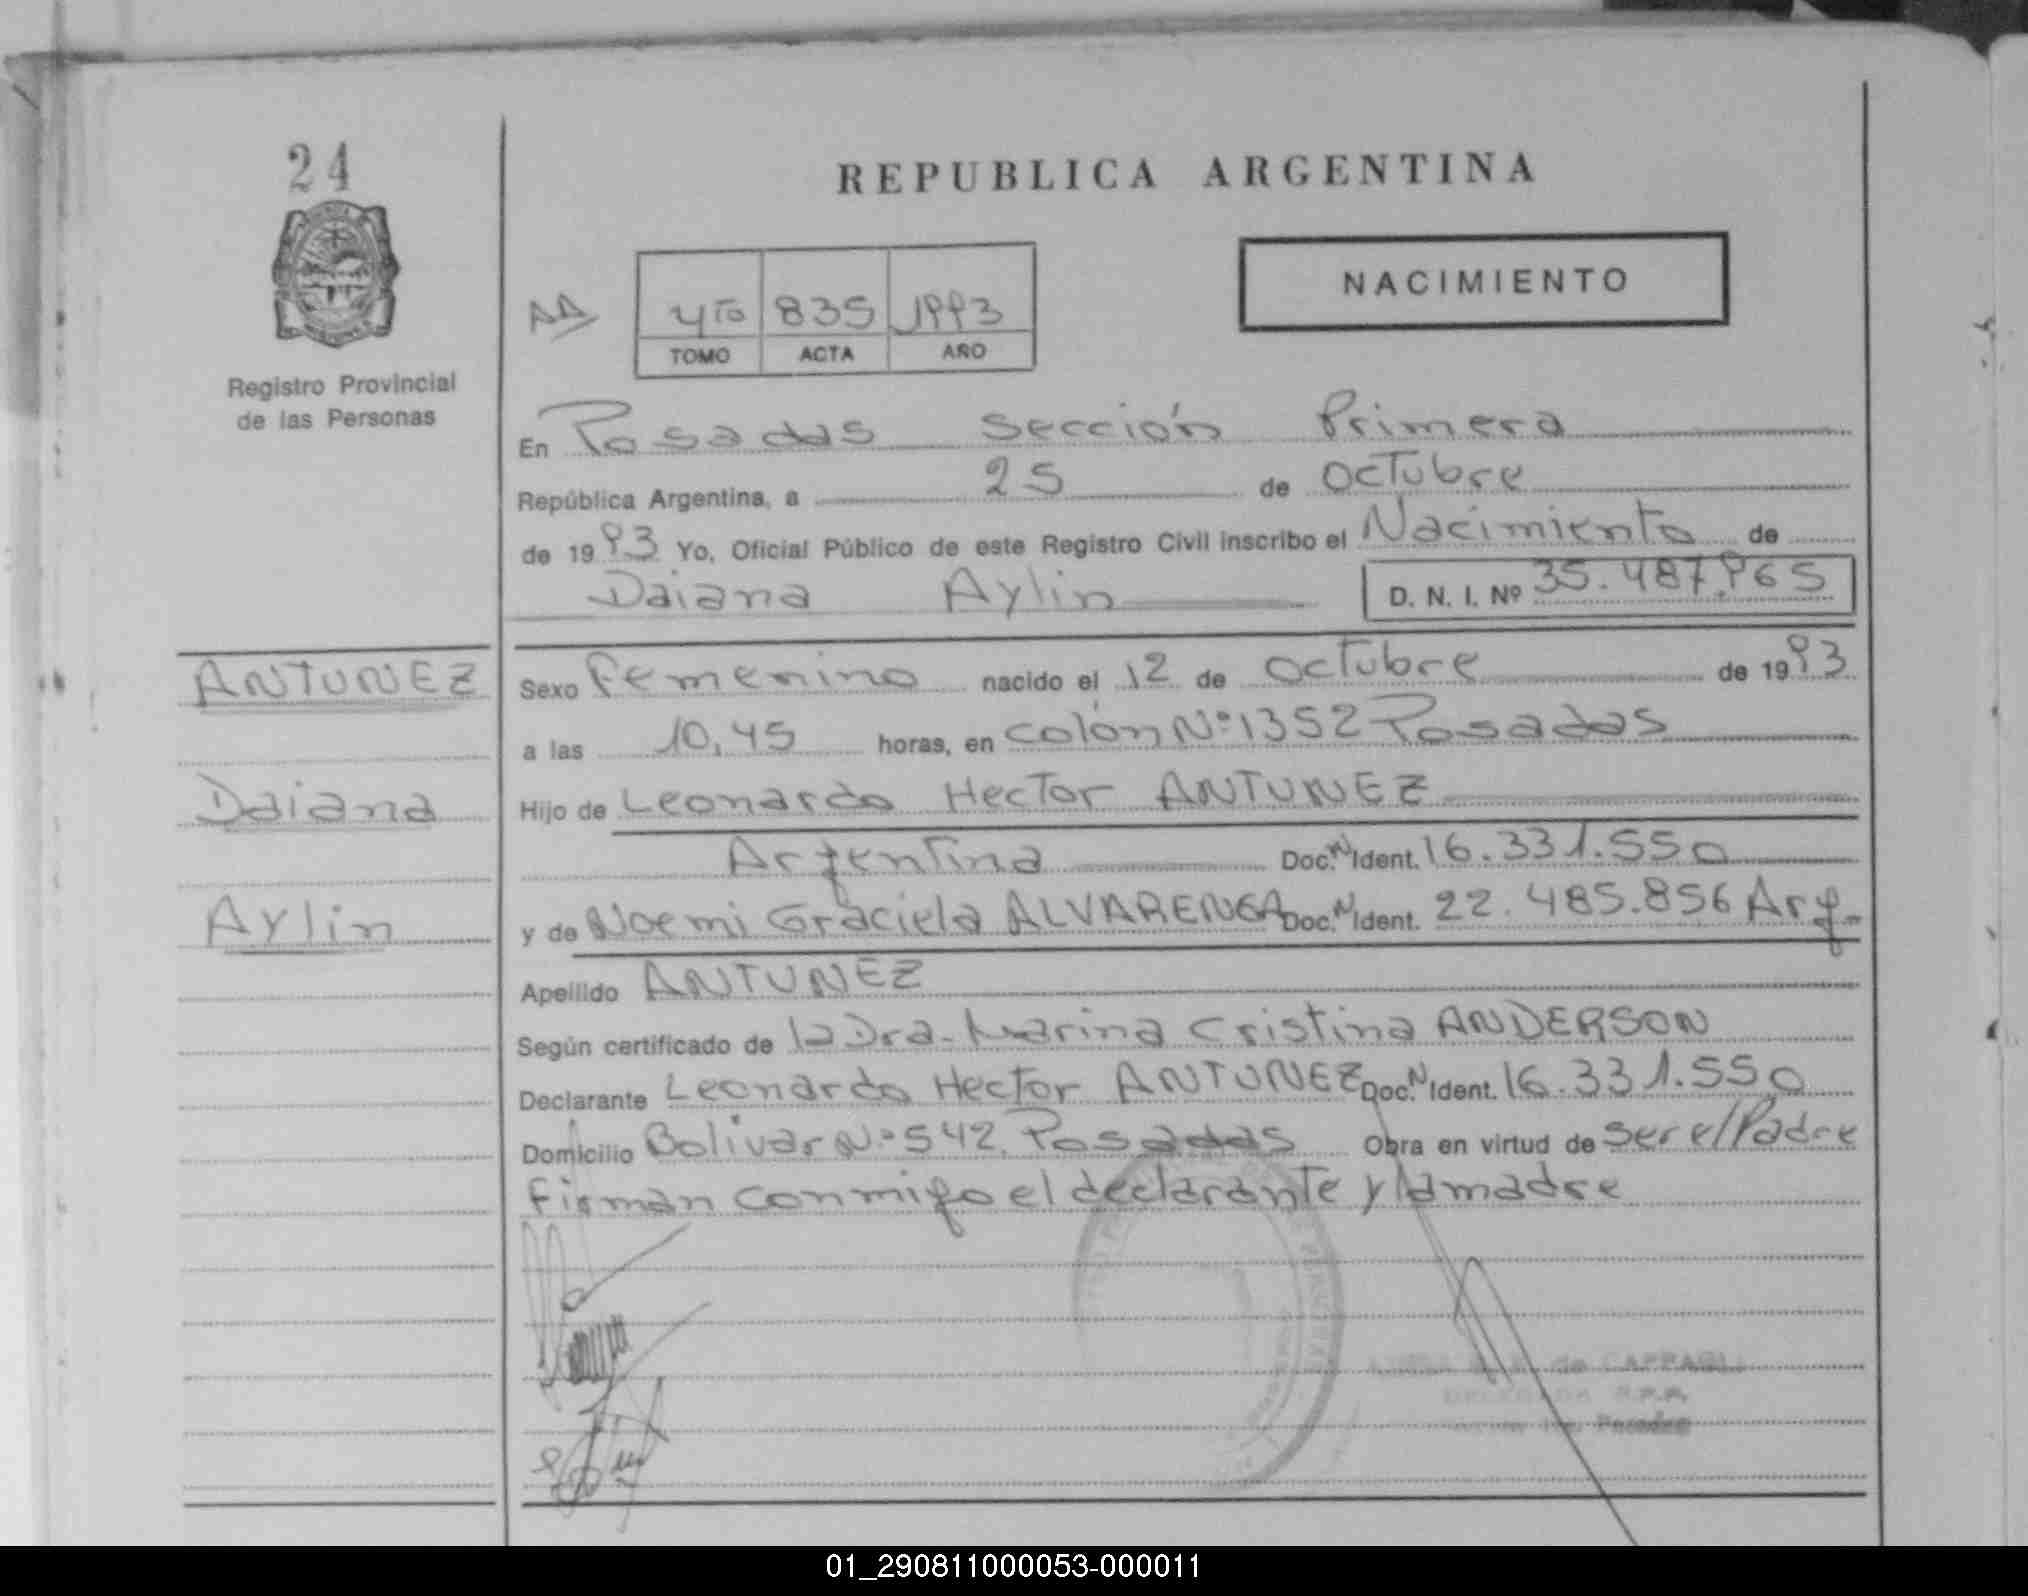 24
REPUBLICA ARGENTINA
NACIMIENTO
4to 835 1993
TOMO ACTA AÑO
Registro Provincial
de las Personas
En Posadas Sección Primera
República Argentina, a 25 de Octubre
de 1993 Yo, Oficial Público de este Registro Civil inscribo el Nacimiento de
Daiana Aylin D. N. I. Nº 35.487.965
ANTUNEZ
Daiana
Aylin
Sexo Femenino nacido el 12 de Octubre de 1993
a las 10,45 horas, en Colón Nº 1352 Posadas
Hijo de Leonardo Hector ANTUNEZ
Argentina Doc. N Ident. 16.331.550
y de Noemi Graciela ALVARENGA Doc. N Ident. 22.485.856 Arg.
Apellido ANTUNEZ
Según certificado de la Dra. Marina Cristina ANDERSON
Declarante Leonardo Hector ANTUNEZ Doc. N Ident. 16.331.550
Domicilio Bolivar Nº 542 Posadas Obra en virtud de ser el Padre
Firman conmigo el declarante y la madre
de CAPPAGLI
DELEGADA R.P.P.
Posadas
01_290811000053-000011